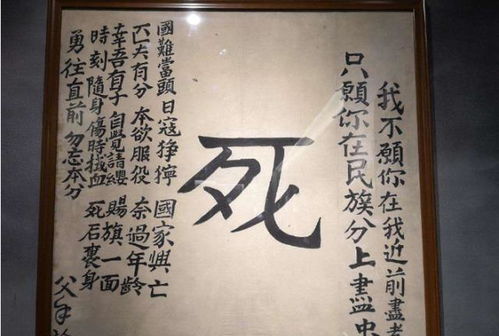 我不願你在我近前盡孝
只願你在民族分上盡忠
死
國難當頭 日寇猙獰 國家興亡
匹夫有分 本欲服役 奈過年齡
幸吾有子 自覺請纓 賜旗一面
時刻隨身 傷時拭血 死后裹身
勇往直前 勿忘本分
父手